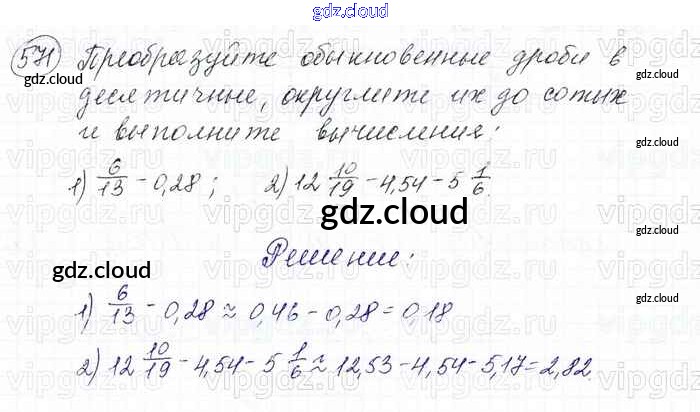 gdz.cloud
571 Преобразуйте обыкновенные дроби в
gdz.cloud gdz.cloud
десятичные, округлите их до сотых
и выполните вычисления:
1) 6/13 - 0,28; 2) 12 10/19 - 4,54 - 5 1/6.
gdz.cloud
gdz.cloud
Решение:
gdz.cloud
gdz.cloud
1) 6/13 - 0,28 ≈ 0,46 - 0,28 = 0,18
2) 12 10/19 - 4,54 - 5 1/6 ≈ 12,53 - 4,54 - 5,17 = 2,82.
gdz.cloud